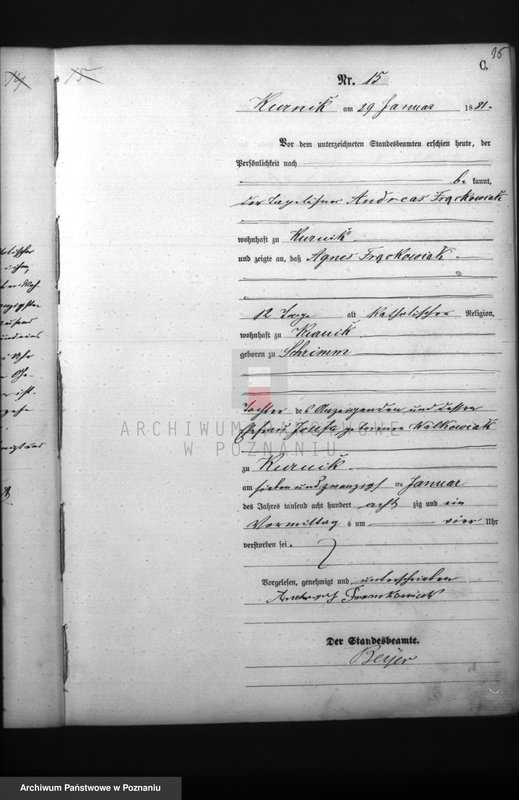 95
C.
Nr. 15
Kurnik am 29 Januar 1881.
Vor dem unterzeichneten Standesbeamten erschien heute, der
Persönlichkeit nach
be kannt,
der Tagelöhner Andreas Frąckowiak
wohnhaft zu Kurnik
und zeigte an, daß Agnes Frąckowiak
12 Tage alt katholischer Religion,
wohnhaft zu Kurnik
geboren zu Schrimm
Tochter des Anzeigenden und dessen
Ehefrau Josefa geborene Walkowiak
zu Kurnik
am sieben und zwanzigsten Januar
des Jahres tausend acht hundert acht zig und ein
Vormittag s um vier Uhr
verstorben sei.
Vorgelesen, genehmigt und unterschrieben
Der Standesbeamte.
Beyer
14
15
ARCHIWUM PAŃSTWOWE
W POZNANIU
Archiwum Państwowe w Poznaniu